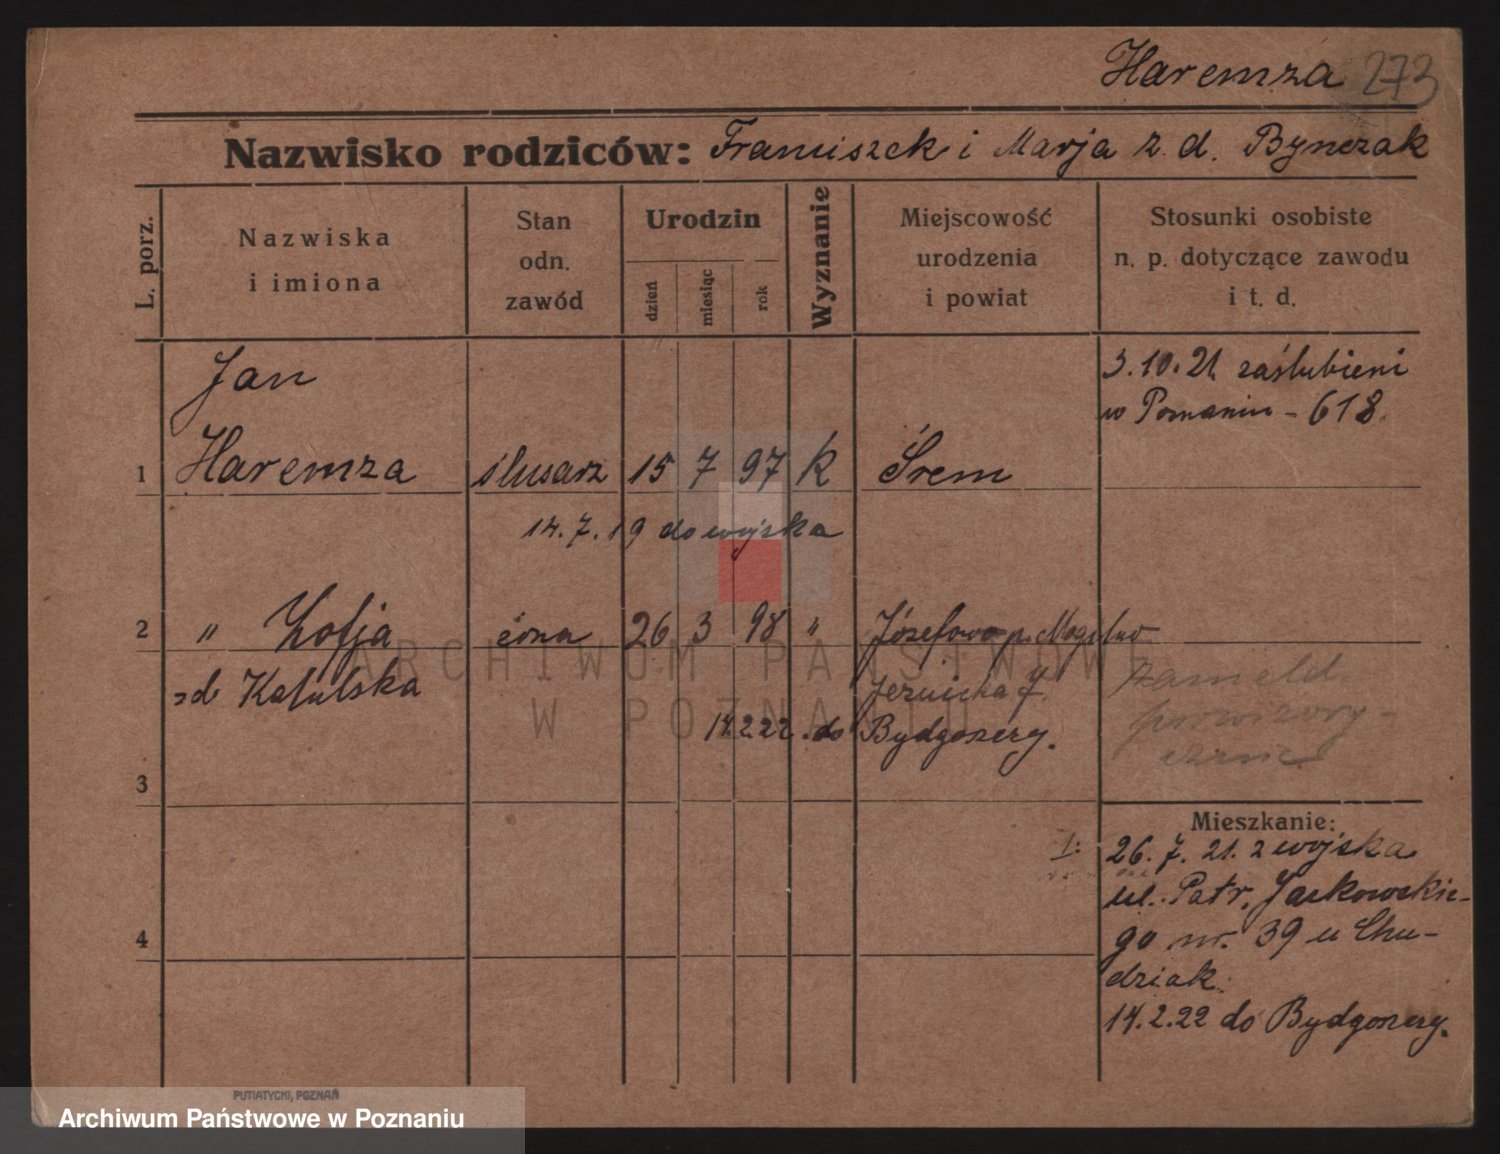 Haremza 273
Nazwisko rodziców: Franciszek i Marja z. d. Bynczak
L. porz.
Nazwiska
i imiona
Stan
odn.
zawód
Urodzin
dzień
miesiąc
rok
Wyznanie
Miejscowość
urodzenia
i powiat
Stosunki osobiste
n. p. dotyczące zawodu
i t. d.
Jan
3.10.21 zaślubieni
w Poznaniu - 618.
1 Haremza ślusarz 15 7 97 k Śrem
14.7.19 do wojska
2 " Zofja żona 26 3 98 " Józefowo p. Mogilno
zd Katulska
zameld.
prowizory-
cznie
14.2.22. do Bydgoszczy.
3
Mieszkanie:
I: 26.7.21. z wojska
ul. Patr. Jackowskie-
go nr. 39 u Chu-
dziak.
4
14.2.22 do Bydgoszczy.
ARCHIWUM PAŃSTWOWE
W POZNANIU
PUTIATYCKI, POZNAŃ
Archiwum Państwowe w Poznaniu